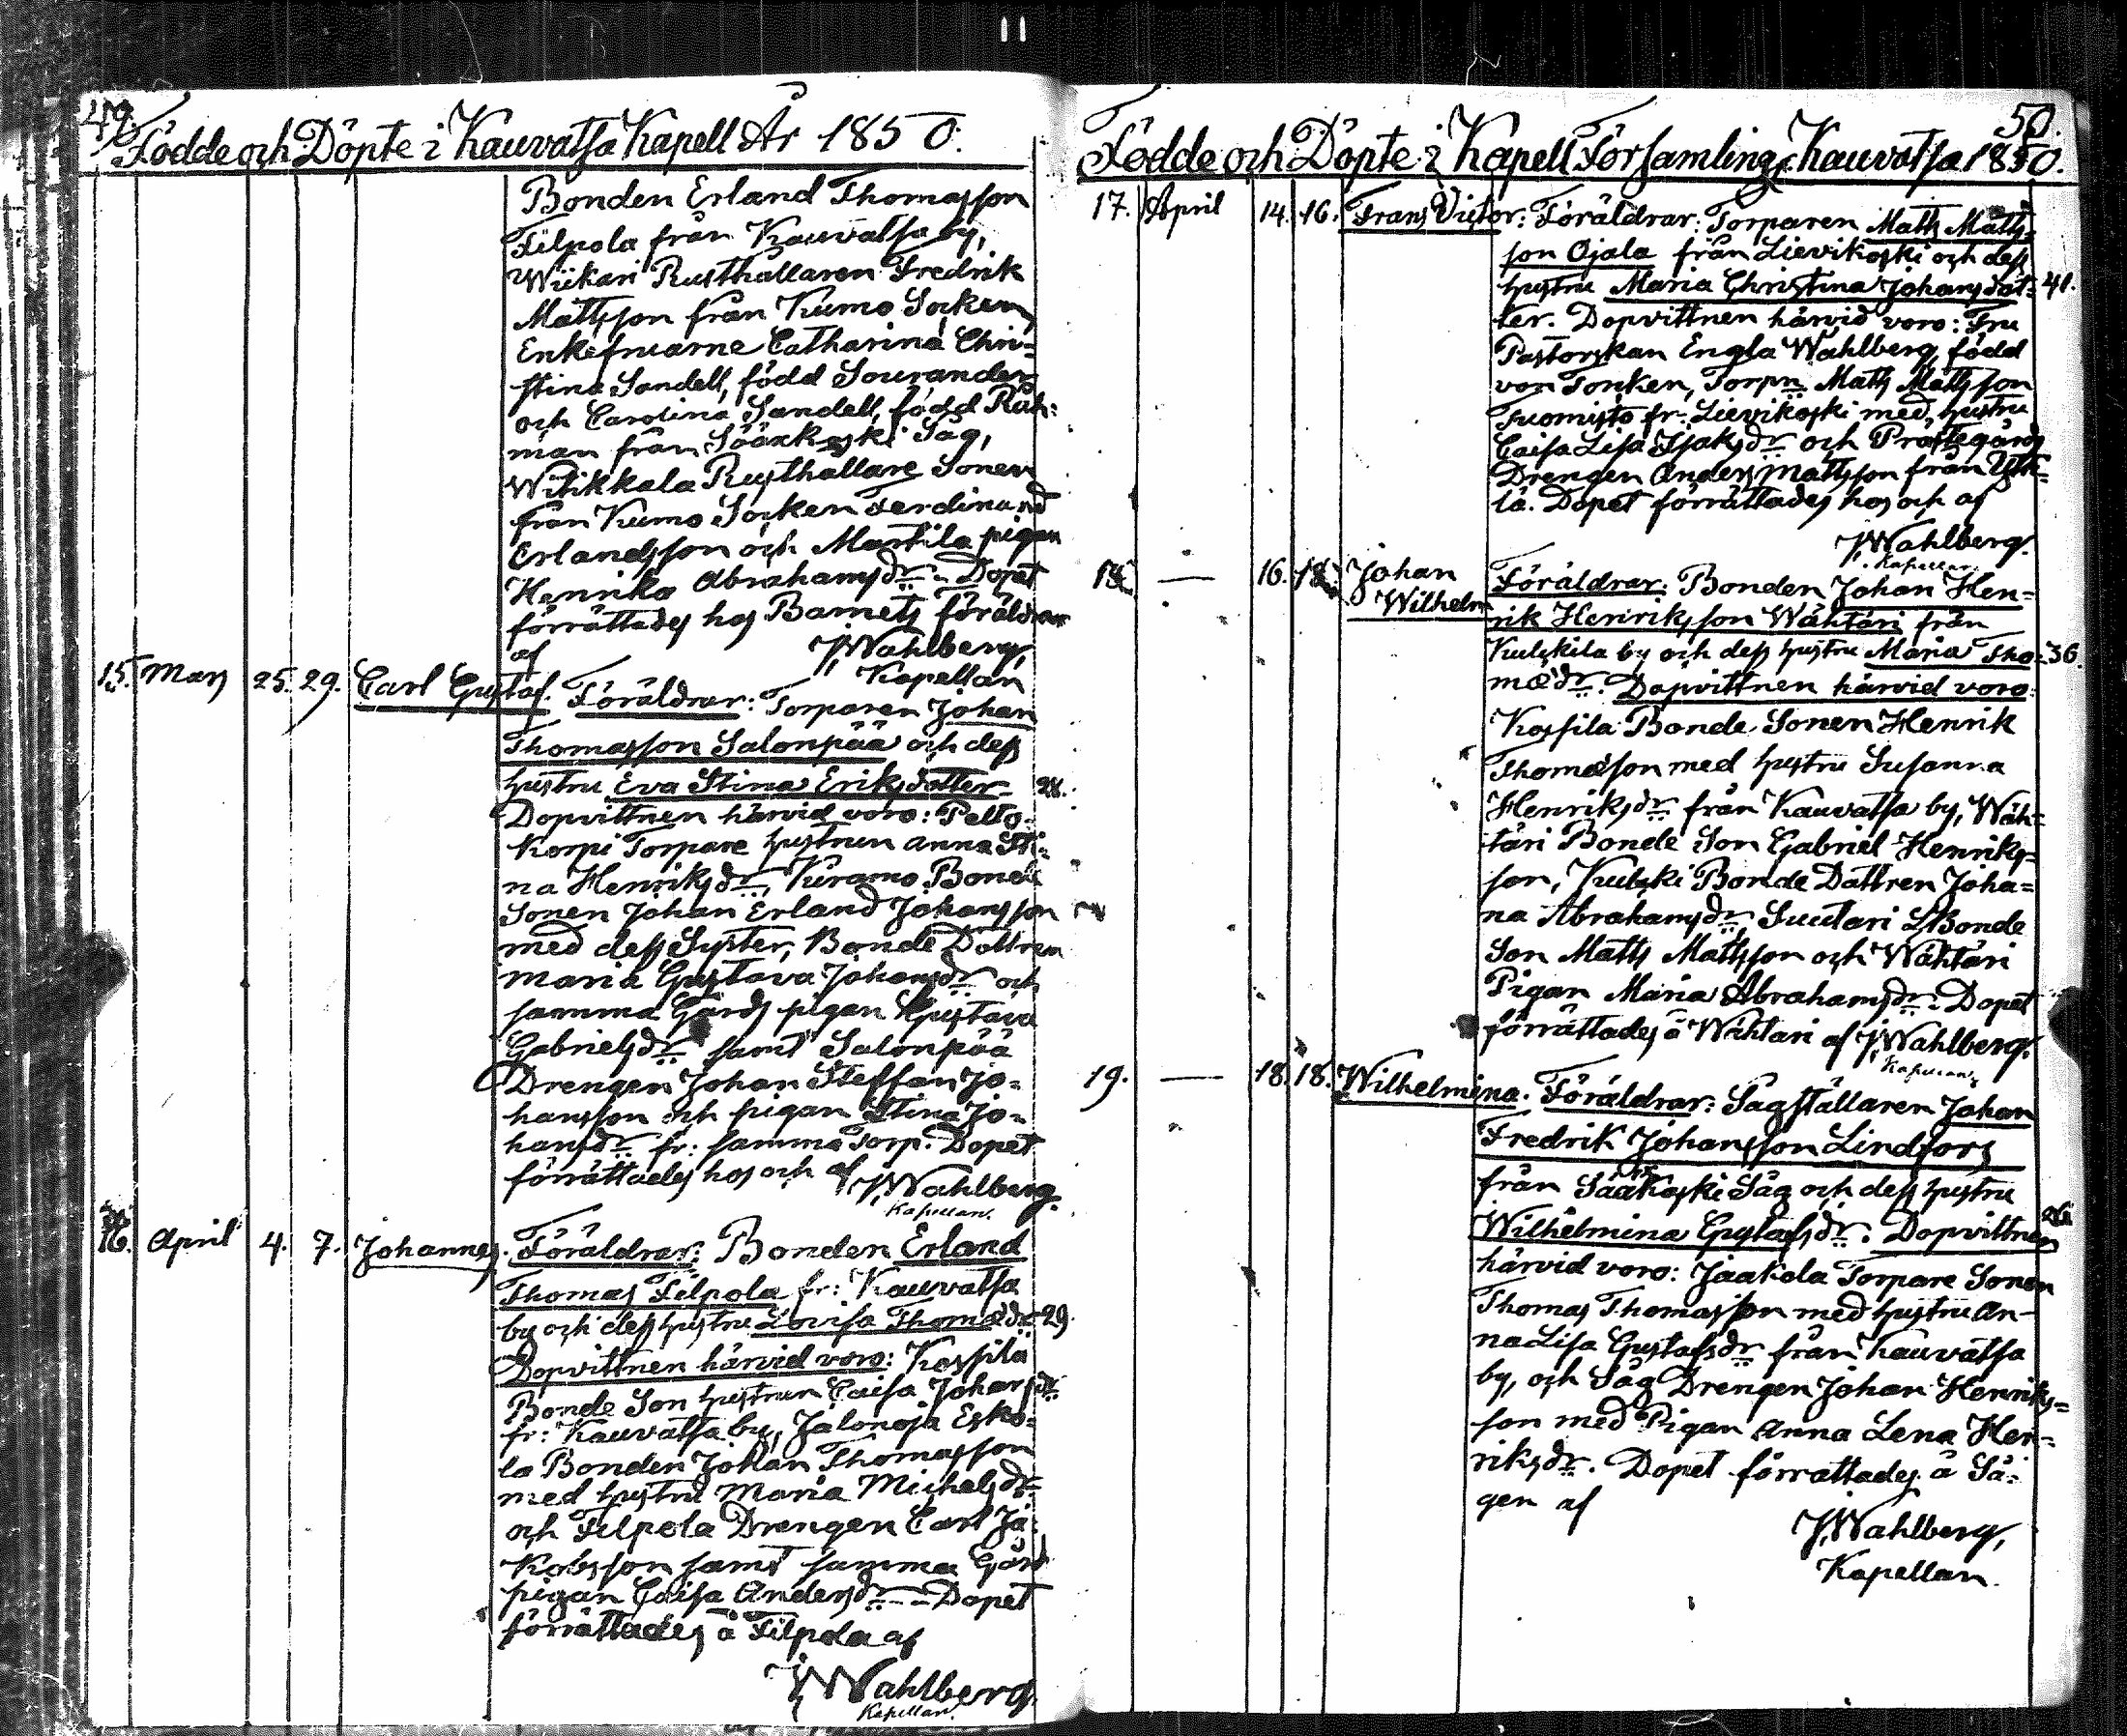 49.
Födde och Döpte i Kauvatsa Kapell År 1850.
Bonden Erland Thomasson
Filpola från Kauvatsa by,
Wiikari Rusthållaren Fredrik
Mattsson från Kumo Socken
Enkefruarne Catharina Chri=
stina Sandell, född Sourander
och Carolina Sandell, född
man från Sääxkoski Såg,
Witikkala Rusthållare Sonen
från Kumo Socken Ferdinand
Erlandsson och Marttila pigan
Henrika Abrahamsdr. Dopet
förrättades hos Barnets föräldrar
af J. Wahlberg,
Kapellan
15. Mars 25. 29. Carl Gustaf. Föräldrar: Torparen Johan
Thomasson Salonpää och dess
hustru Eva Stina Eriksdotter
Dopvittnen härvid voro: Pelto=
korpi Torpare hustrun Anna Sti=
na Henriksdr, Kuramo Bonde
Sonen Johan Erland Johansson
med dess Syster, Bonde Dottren
Maria Gustava Johansdr och
samma Gårds pigan Gustava
Gabrielsdr samt Salonpää
Drengen Johan Steffan Jo=
hansson och pigan Stina Jo=
hansdr fr: samma Torp. Dopet
förrättades hos och af J. Wahlberg.
Kapellan.
16. April 4. 7. Johannes. Föräldrar: Bonden Erland
Thomas Filpola fr: Kauvatsa
by och dess hustru Lovisa Thomædr 29.
Dopvittnen härvid voro: Kassila
Bonde Son hustrun Caisa Johansdr
fr: Kauvatsa by, Jalonoja Esko=
la Bonden Johan Thomasson
med hustru Maria Michelsdr
och Filpola Drengen Carl Ja=
kobsson samt samma Gård
pigan Caisa Andersdr Dopet
förrättades å Filpola af
J. Wahlberg.
Kapellan.
50.
Födde och Döpte i Kapell Församling Kauvatsa 1850.
17. April 14. 16. Frans Victor: Föräldrar: Torparen Matts Matts=
son Ojala från Lievikoski och dess
hustru Maria Christina Johansdot= 41.
ter. Dopvittnen härvid voro: Fru
Pastorskan Engla Wahlberg, född
von Tonken, Torpn Matts Mattsson
Tuomisto fr: Lievikoski med hustru
Caisa Lisa Isaksdr och Prästegårds
Drengen Anders Mattsson från Ytti=
lä. Dopet förrättades hos och af
J. Wahlberg.
Kapellan
18. — 16. 18. Johan
Wilhelm Föräldrar: Bonden Johan Hen=
rik Henriksson Wähtäri från
Kulskila by och dess hustru Maria Tho= 36.
mædr. Dopvittnen härvid voro:
Kassila Bonde Sonen Henrik
Thomæson med hustru Susanna
Henriksdr från Kauvatsa by, Wäh=
täri Bonde Son Gabriel Henriks=
son, Kulski Bonde Dottren Joha=
na Abrahamsdr, Suutari Bonde
Son Matts Mattsson och Wähtäri
Pigan Maria Abrahamsdr. Dopet
förrättades å Wähtäri af J. Wahlberg.
Kapellan
19. — 18. 18. Wilhelmina. Föräldrar: Sågställaren Johan
Fredrik Johansson Lindfors
från Sääxkoski Såg och dess hustru
Wilhelmina Gustafsdr. Dopvittnen
härvid voro: Jaakola Torpare Sonen
Thomas Thomasson med hustru An=
na Lisa Gustafsdr från Kauvatsa
by, och Såg Drengen Johan Henriks=
son med Pigan Anna Lena Hen=
riksdr. Dopet förrättades å Så=
gen af
J. Wahlberg,
Kapellan.